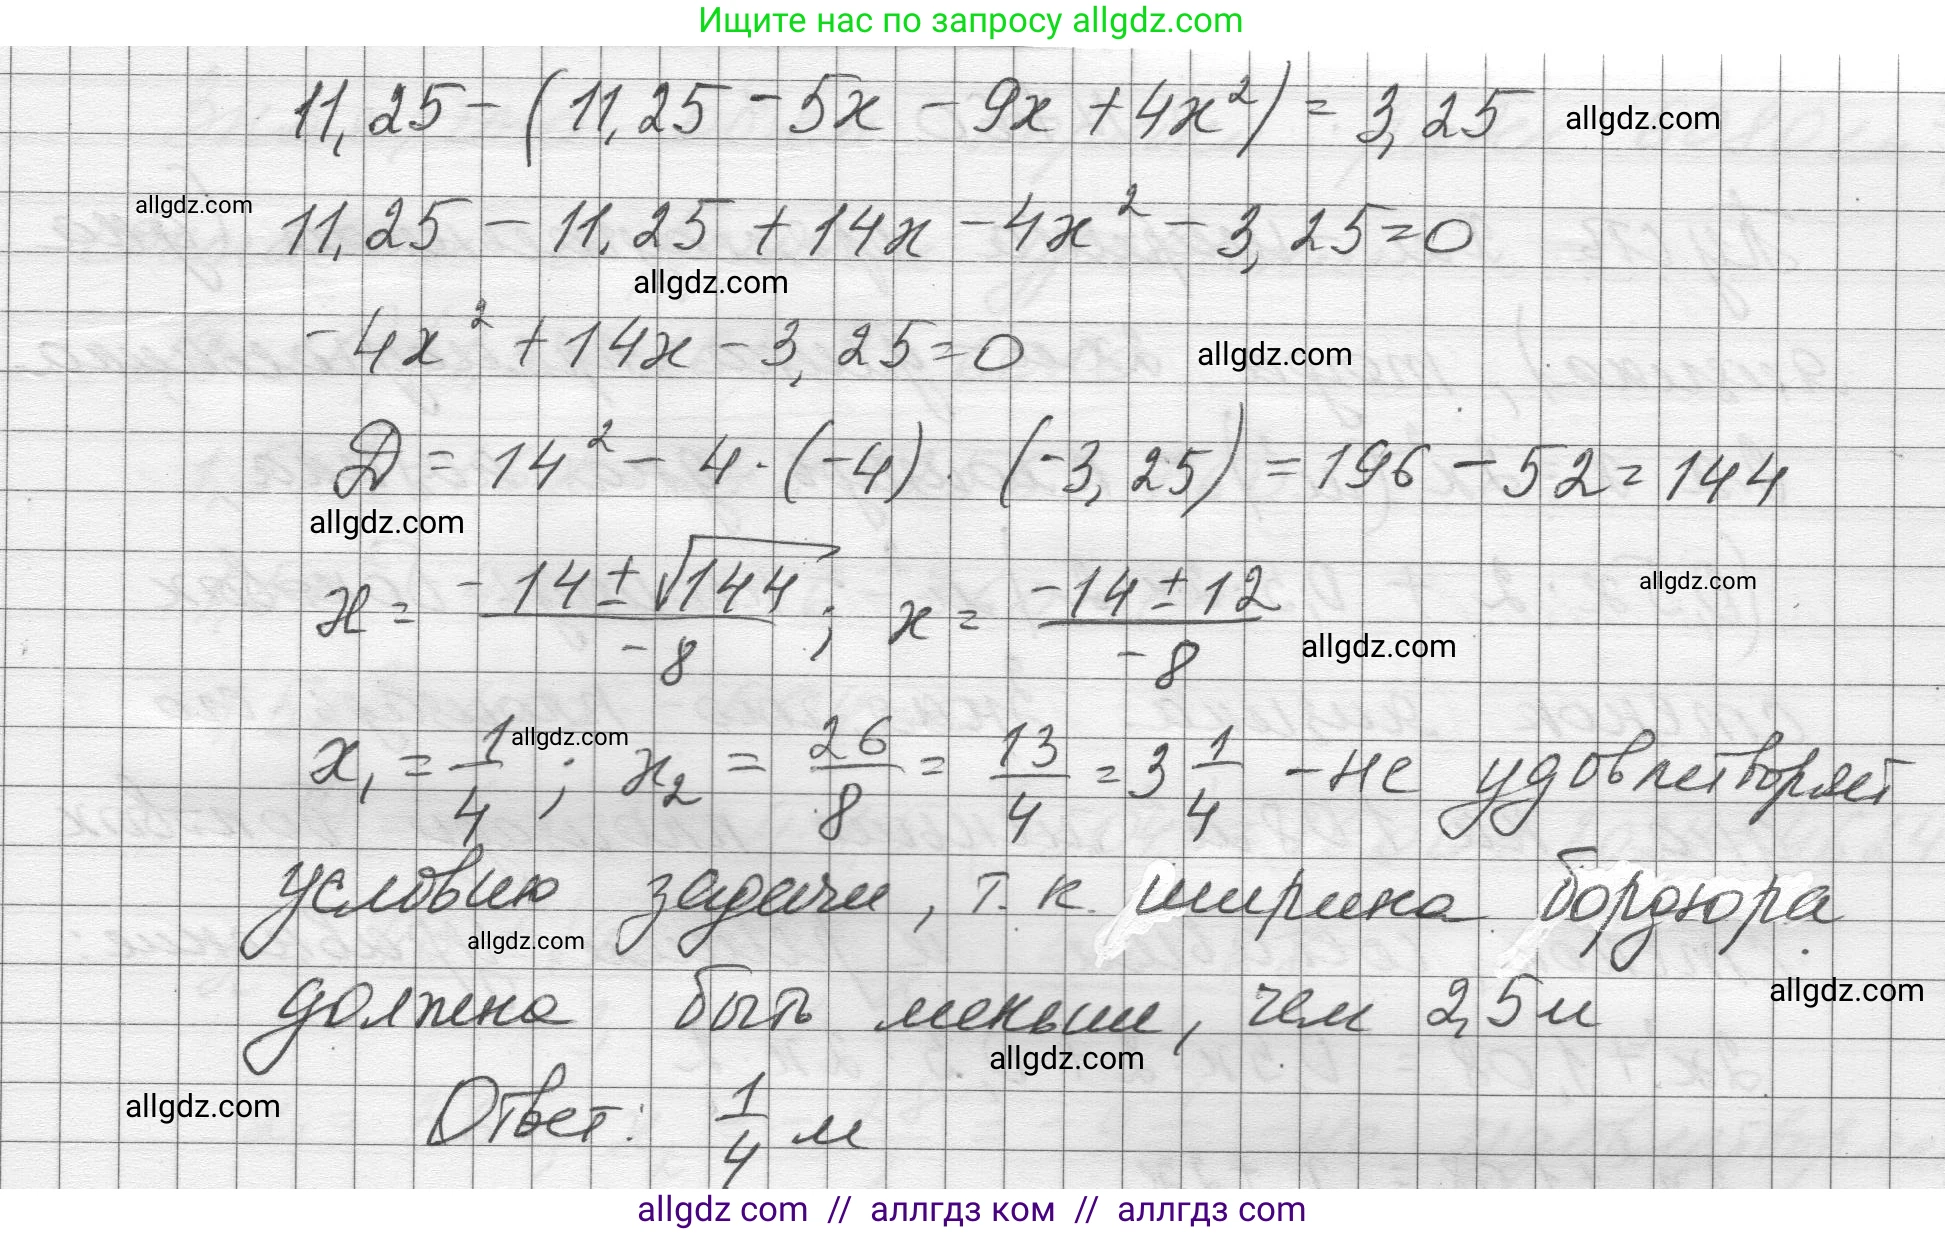 Ищите нас по запросу allgdz.com
11,25 - (11,25 - 5x - 9x + 4x²) = 3,25 allgdz.com
allgdz.com
11,25 - 11,25 + 14x - 4x² - 3,25 = 0
allgdz.com
-4x² + 14x - 3,25 = 0 allgdz.com
Д = 14² - 4 · (-4) · (-3,25) = 196 - 52 = 144
allgdz.com
x = (-14 ± √144)/(-8); x = (-14 ± 12)/(-8) allgdz.com
allgdz.com
x₁ = 1/4; allgdz.com x₂ = 26/8 = 13/4 = 3 1/4 - не удовлетворяет
условию задачи, т.к. ширина бордюра
allgdz.com
должна быть меньши, чем 2,5 м allgdz.com
allgdz.com
allgdz.com
Ответ: 1/4 м
allgdz com // аллгдз ком // аллгдз com